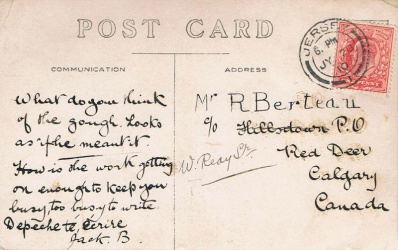 POST CARD
COMMUNICATION
ADDRESS
JERSEY
6. PM
JY
10
What do you think
of the gough. Looks
as if he meant it.
How is the work getting
on enough to keep you
busy, too busy to write
Depêche té, écrire
Jack. B.
Mr R Berteau
c/o Hillsdown P.O
W. Reay St.
Red Deer
Calgary
Canada